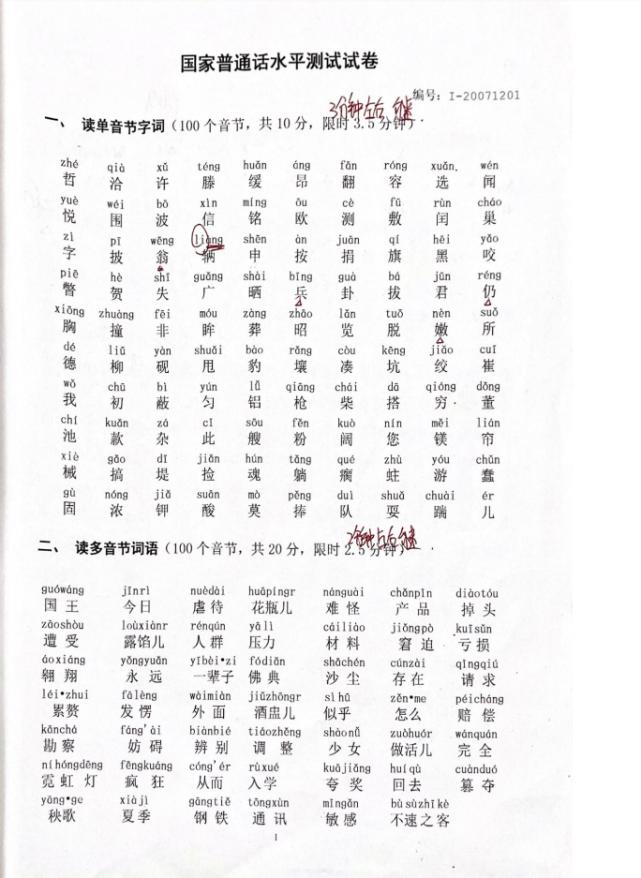 国家普通话水平测试试卷
编号：I-20071201
2分钟左右
一、读单音节字词（100个音节，共10分，限时3.5分钟）
zhé qià xǔ téng huǎn áng fān róng xuǎn wén
哲 洽 许 滕 缓 昂 翻 容 选 闻
yuè wéi bō xìn míng ōu cè fū rùn cháo
悦 围 波 信 铭 欧 测 敷 闰 巢
zì pī wēng liàng shēn àn juān qí hēi yǎo
字 披 翁 辆 申 按 捐 旗 黑 咬
piē hè shī guǎng shài bīng guà bá jūn réng
瞥 贺 失 广 晒 兵 卦 拔 君 仍
xiōng zhuàng fēi móu zàng zhāo lǎn tuō nèn suǒ
胸 撞 非 眸 葬 昭 览 脱 嫩 所
dé liǔ yàn shuǎi bào rǎng còu kēng jiǎo cuī
德 柳 砚 甩 豹 壤 凑 坑 绞 崔
wǒ chū bì yún lǚ qiāng chái dā qióng dǒng
我 初 蔽 匀 铝 枪 柴 搭 穷 董
chí kuǎn zá cǐ sōu fěn kuò nín měi lián
池 款 杂 此 艘 粉 阔 您 镁 帘
xiè gǎo dī jiǎn hún tǎng qué zhù yóu chǔn
械 搞 堤 捡 魂 躺 瘸 蛀 游 蠢
gù nóng jiǎ suān mò pěng duì shuǎ chuài ér
固 浓 钾 酸 莫 捧 队 耍 踹 儿
2分钟左右
二、读多音节词语（100个音节，共20分，限时2.5分钟）
guówáng jīnrì nuèdài huāpíngr nánguài chǎnpǐn diàotóu
国王 今日 虐待 花瓶儿 难怪 产品 掉头
zāoshòu lòuxiànr rénqún yālì cáiliào jiǒngpò kuīsǔn
遭受 露馅儿 人群 压力 材料 窘迫 亏损
áoxiáng yǒngyuǎn yībèi•zi fódiǎn shāchén cúnzài qǐngqiú
翱翔 永远 一辈子 佛典 沙尘 存在 请求
léi•zhui fālèng wàimiàn jiǔzhōngr sìhū zěn•me péicháng
累赘 发愣 外面 酒盅儿 似乎 怎么 赔偿
kānchá fáng'ài biànbié tiáozhěng shàonǚ zuòhuór wánquán
勘察 妨碍 辨别 调整 少女 做活儿 完全
níhóngdēng fēngkuáng cóng'ér rùxué kuājiǎng huíqù cuànduó
霓虹灯 疯狂 从而 入学 夸奖 回去 篡夺
yāng•ge xiàjì gāngtiě tōngxùn mǐngǎn bùsùzhīkè
秧歌 夏季 钢铁 通讯 敏感 不速之客
1